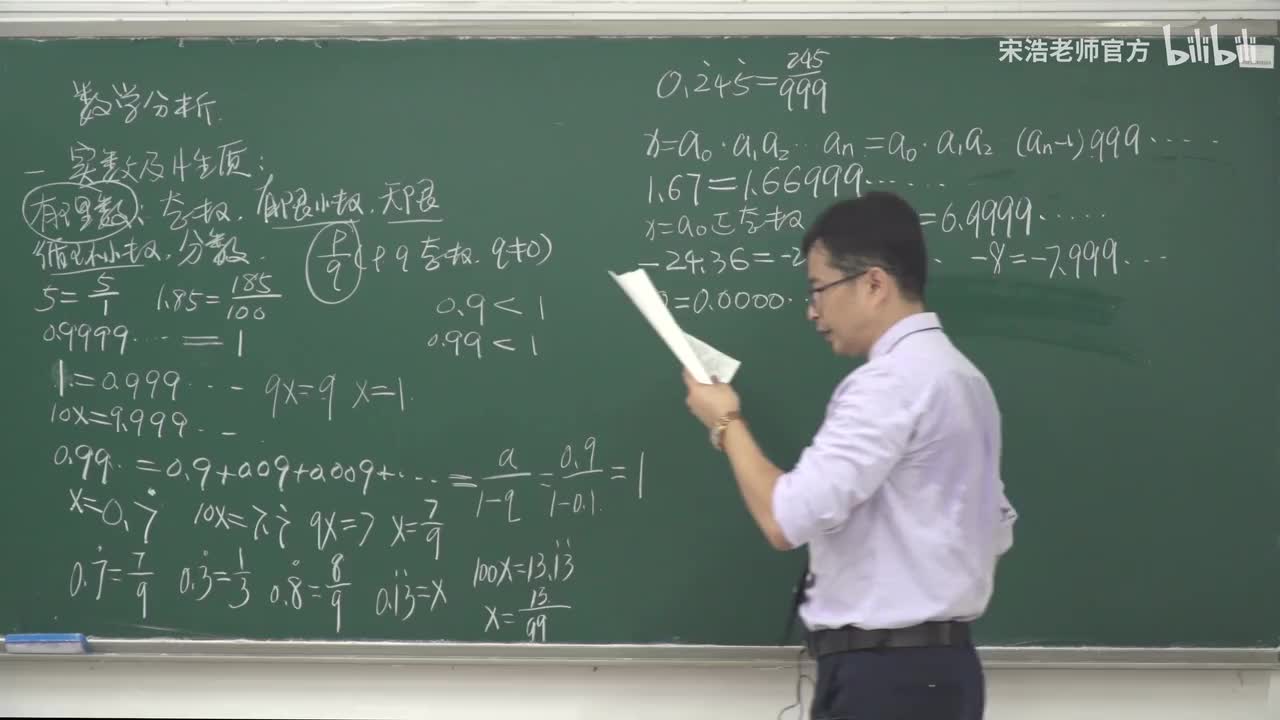 宋浩老师官方 bilibili
数学分析.
一 实数及其性质:
有理数: 整数. 有限小数. 无限
循环小数. 分数. p/q (p q 整数. q≠0)
5=5/1 1.85=185/100
0.9<1
0.9999···=1 0.99<1
=0.999··· 9x=9 x=1.
10x=9.999···
0.99··=0.9+0.09+0.009+···=a/1-q=0.9/1-0.1=1
x=0.7̇ 10x=7.7̇ 9x=7 x=7/9
0.7̇=7/9 0.3̇=1/3 0.8̇=8/9 0.1̇3̇=x
100x=13.1̇3̇
x=13/99
0.2̇45̇=245/999
x=a₀.a₁a₂··aₙ=a₀.a₁a₂ (aₙ-1)999·····
1.67=1.66999······
x=a₀正整数 =6.9999·····
-24.36=-2 -8=-7.999···
=0.0000·